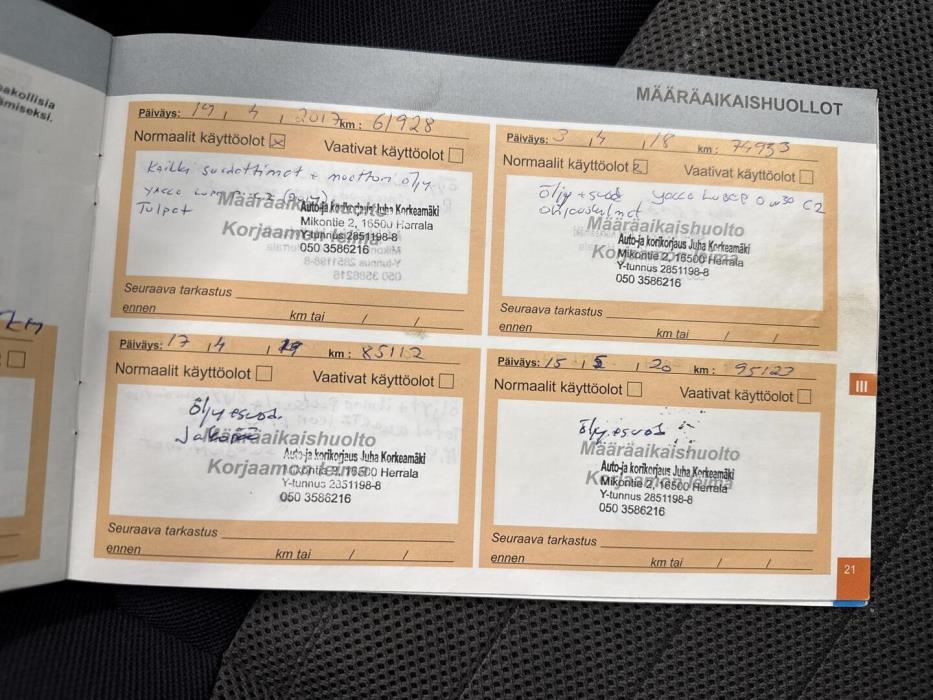 akollisia
ämiseksi.
MÄÄRÄAIKAISHUOLLOT
Päiväys: 19 , 4 , 2017 km : 61928
Normaalit käyttöolot ☒ Vaativat käyttöolot ☐
Kaikki suodattimet + moottori öljy
Yacco
Tulpat
Määräaikaishuolto
Korjaamon leima
Auto-ja korikorjaus Juha Korkeamäki
Mikontie 2, 16500 Herrala
Y-tunnus 2851198-8
050 3586216
Seuraava tarkastus
ennen km tai / /
Päiväys: 3 , 4 , 18 km : 74953
Normaalit käyttöolot ☒ Vaativat käyttöolot ☐
Öljy + suod Yacco 0w30 C2
Määräaikaishuolto
Korjaamon leima
Auto-ja korikorjaus Juha Korkeamäki
Mikontie 2, 16500 Herrala
Y-tunnus 2851198-8
050 3586216
Seuraava tarkastus
ennen km tai / /
Päiväys: 17 , 4 , 19 km : 85112
Normaalit käyttöolot ☐ Vaativat käyttöolot ☐
Öljy + suod.
Määräaikaishuolto
Korjaamon leima
Auto-ja korikorjaus Juha Korkeamäki
Mikontie 2, 16500 Herrala
Y-tunnus 2851198-8
050 3586216
Seuraava tarkastus
ennen km tai / /
Päiväys: 15 , 5 , 20 km : 95123
Normaalit käyttöolot ☐ Vaativat käyttöolot ☐
Öljy + suod
Määräaikaishuolto
Korjaamon leima
Auto-ja korikorjaus Juha Korkeamäki
Mikontie 2, 16500 Herrala
Y-tunnus 2851198-8
050 3586216
Seuraava tarkastus
ennen km tai / /
III
21